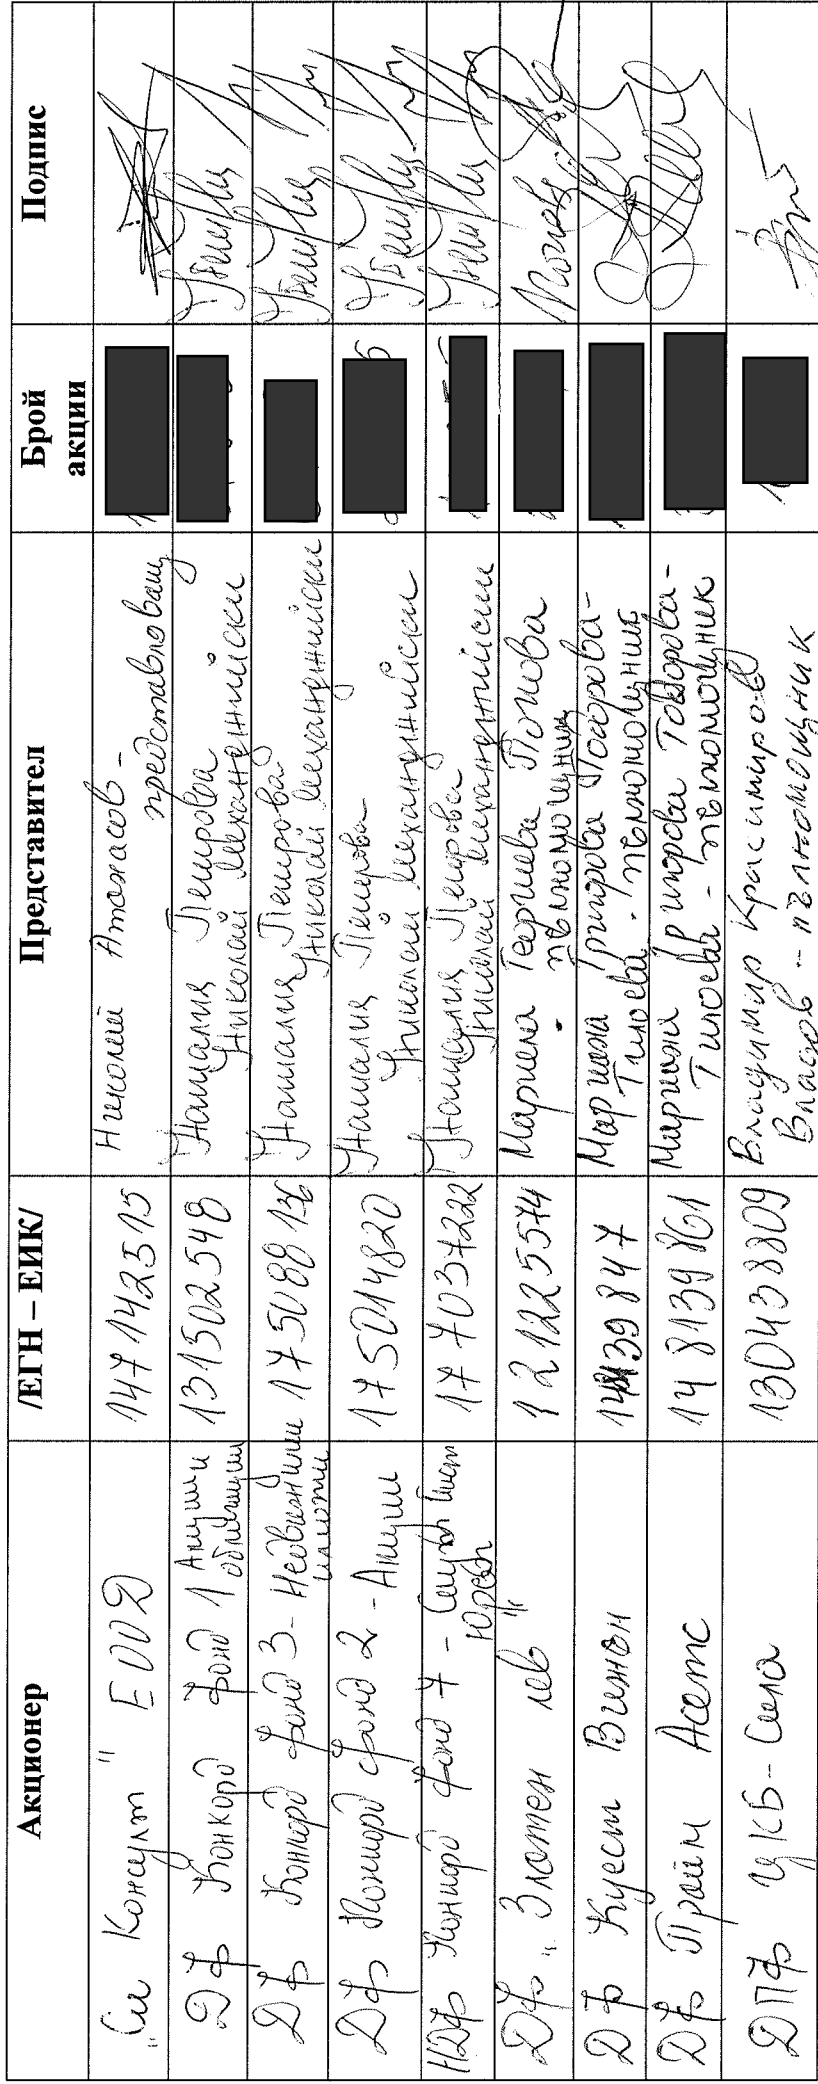 Акционер /ЕГН – ЕИК/ Представител Брой акции Подпис
"Си Консулт" ЕООД 147142515 Николай Атанасов - представляващ
ДФ Конкорд фонд 1 Акции и облигации 131502548 Наталия Петрова Николай Механджийски
ДФ Конкорд фонд 3 - Недвижими имоти 175088136 Наталия Петрова Николай Механджийски
ДФ Конкорд фонд 2 - Акции 175014820 Наталия Петрова Николай Механджийски
НДФ Конкорд фонд 7 - 177037222 Наталия Петрова Николай Механджийски
ДФ "Златен лев" 121225574 Мариела Георгиева Попова - пълномощник
ДФ Куест Вижън Мариана Григорова Тодорова - Тилоева - пълномощник
ДФ Прайм Асетс 148139861 Мариана Григорова Тодорова - Тилоева - пълномощник
ДПФ ЦКБ - Сила 130438809 Владимир Красимиров Власов - пълномощник